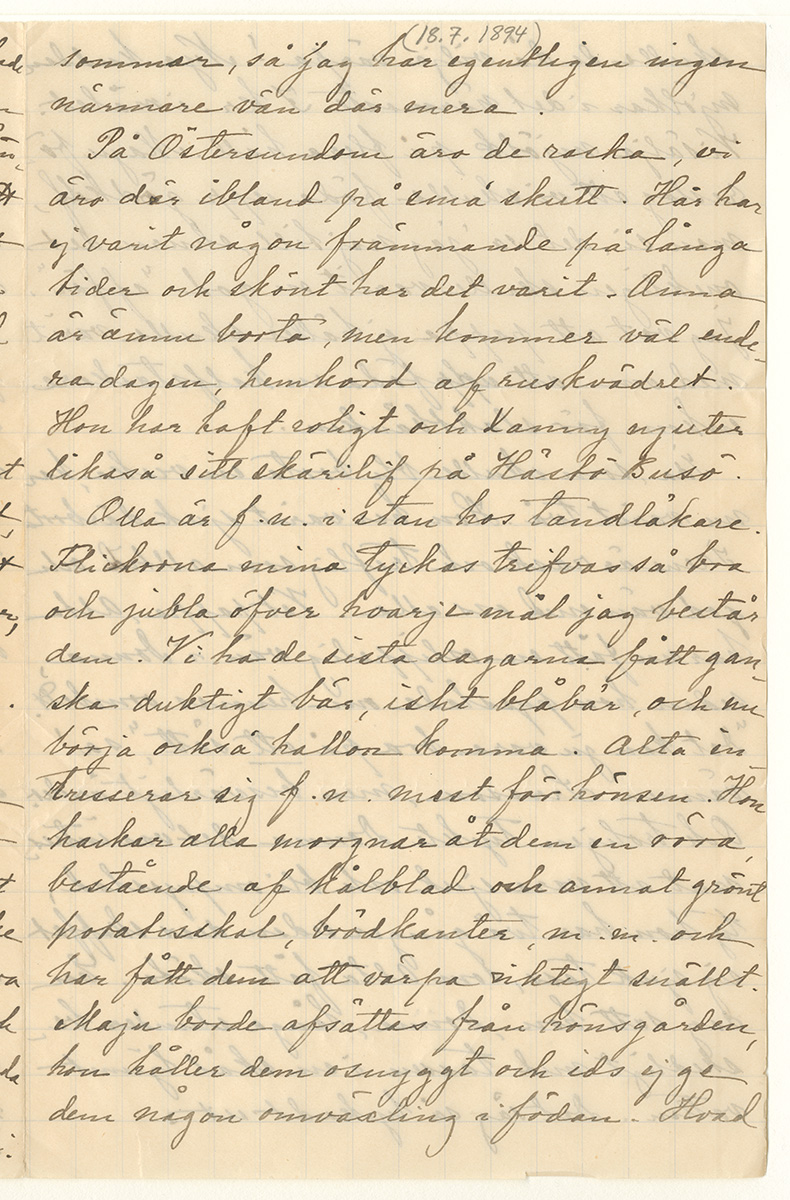 (18.7.1894)
sommar, så jag har egentligen ingen
närmare vän där mera.
På Östersundom äro de raska, vi
äro där ibland på små skutt. Här har
ej varit någon främmande på långa
tider och skönt har det varit. Anna
är ännu borta, men kommer väl ende-
ra dagen, hemkörd af ruskvädret.
Hon har haft roligt och Nanny njuter
likaså sitt skärilif på Hästö Busö.
Olla är f.n. i stan hos tandläkare.
Flickorna mina tyckas trifvas så bra
och jubla öfver hvarje mål jag består
dem. Vi ha de sista dagarna fått gan-
ska duktigt bär, isht blåbär, och nu
börja också hallon komma. Alta in
tresserar sig f.n. mest för hönsen. Hon
hackar alla morgnar åt dem en röra,
bestående af kålblad och annat grönt
potatisskal, brödkanter, m.m. och
har fått dem att värpa riktigt snällt.
Maju borde afsättas från hönsgården,
hon håller dem osnyggt och ids ej ge
dem någon omväxling i födan. Hvad